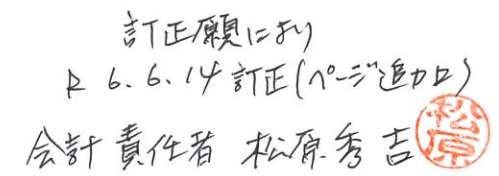 訂正願により
R 6.6.14 訂正(ページ追加)
会計責任者 松原秀吉
松原